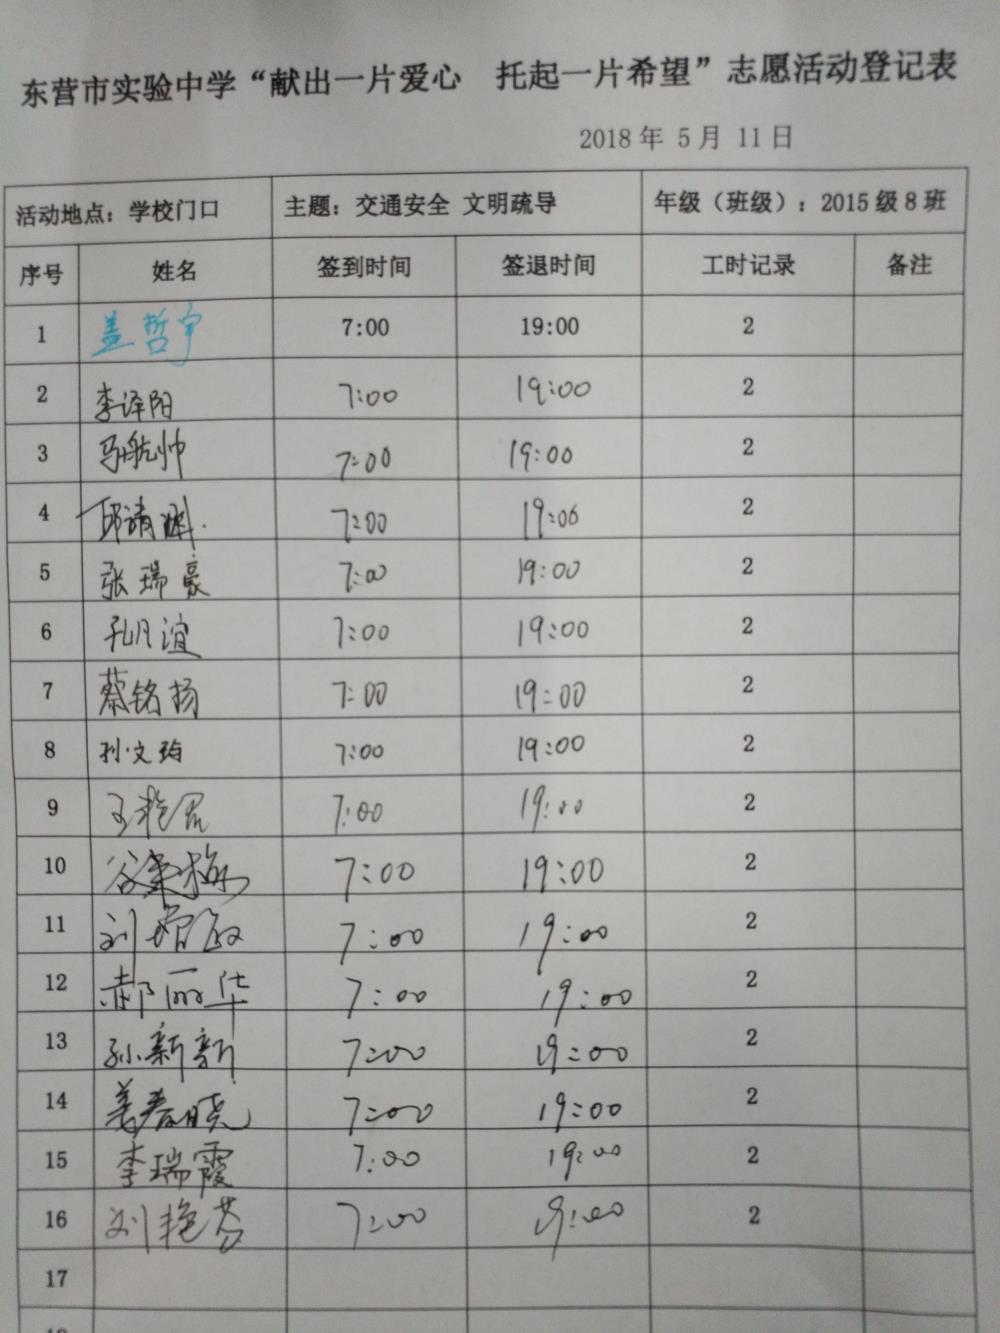 东营市实验中学“献出一片爱心 托起一片希望”志愿活动登记表
2018 年 5 月 11 日
活动地点：学校门口 主题：交通安全 文明疏导 年级（班级）：2015 级 8 班
序号 姓名 签到时间 签退时间 工时记录 备注
1 盖哲宇 7:00 19:00 2
2 李泽阳 7:00 19:00 2
3 马航帅 7:00 19:00 2
4 邱靖 7:00 19:00 2
5 张瑞豪 7:00 19:00 2
6 孔月谊 7:00 19:00 2
7 蔡铭扬 7:00 19:00 2
8 孙文 7:00 19:00 2
9 王艳 7:00 19:00 2
10 谷 梅 7:00 19:00 2
11 刘增敏 7:00 19:00 2
12 郝丽华 7:00 19:00 2
13 孙新新 7:00 19:00 2
14 姜春晓 7:00 19:00 2
15 李瑞霞 7:00 19:00 2
16 刘艳芬 7:00 19:00 2
17